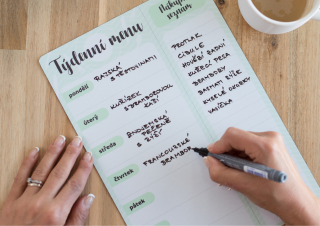 Týdenní menu
pondělí
RAJSKÁ
S TĚSTOVINAMI
úterý
KUŘÍZEK
S BRAMBOROVOU
KAŠÍ
středa
ZNOJEMSKÁ
PEČENĚ
S RÝŽÍ
čtvrtek
FRANCOUZSKÉ
BRAMBOR
pátek
Nákupní
seznam
PROTLAK
CIBULE
HOVĚZÍ ZADNÍ
KUŘECÍ PRSA
BRAMBORY
BASMATI RÝŽE
KYSELÉ OKURKY
VAJÍČKA